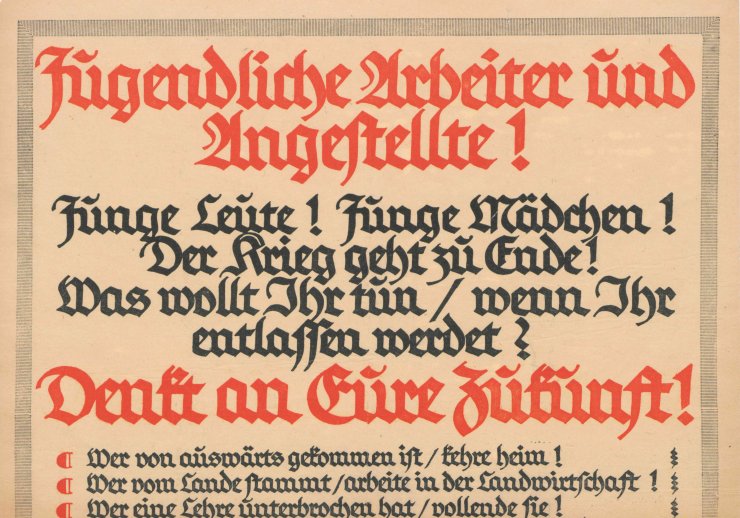 Jugendliche Arbeiter und
Angestellte!
Junge Leute! Junge Mädchen!
Der Krieg geht zu Ende!
Was wollt Ihr tun / wenn Ihr
entlassen werdet?
Denkt an Eure Zukunft!
Wer von auswärts gekommen ist / kehre heim!
Wer vom Lande stammt / arbeite in der Landwirtschaft!
Wer eine Lehre unterbrochen hat / vollende sie!